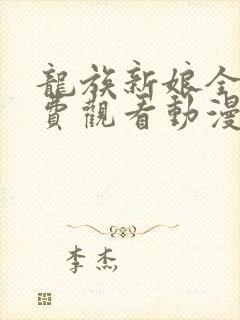 龍族新娘全
費觀看動漫
李杰